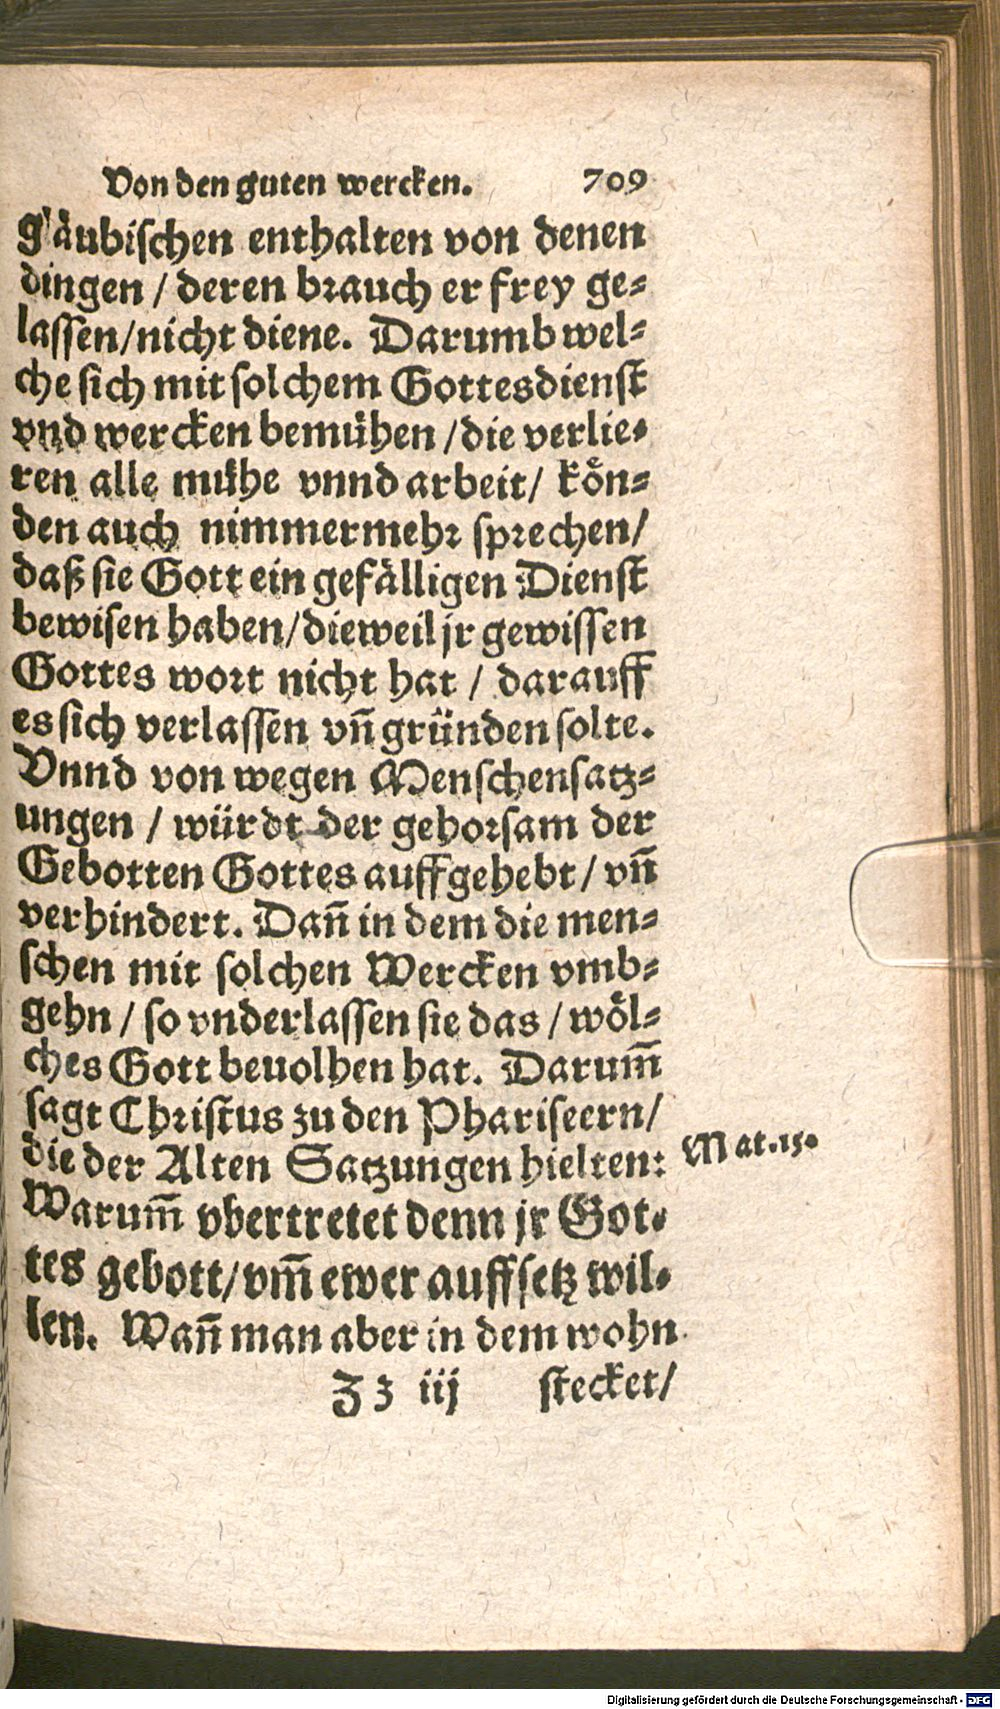 Von den guten wercken. 709
gläubischen enthalten von denen
dingen / deren brauch er frey ge⸗
lassen/nicht diene. Darumb wel⸗
che sich mit solchem Gottesdienst
vnd wercken bemühen /die verlie⸗
ren alle mühe vnnd arbeit/ kön⸗
den auch nimmermehr sprechen/
daß sie Gott ein gefälligen Dienst
bewisen haben/dieweil jr gewissen
Gottes wort nicht hat / darauff
es sich verlassen vn̄ gründen solte.
Vnnd von wegen Menschensatz⸗
ungen / würdt der gehorsam der
Gebotten Gottes auffgehebt/ vn̄
verhindert. Dan̄ in dem die men⸗
schen mit solchen Wercken vmb⸗
gehn / so vnderlassen sie das / wöl⸗
ches Gott beuolhen hat. Darum̄
sagt Christus zu den Phariseern/
die der Alten Satzungen hielten: Mat.15.
Warum̄ vbertretet denn jr Got⸗
tes gebott/vm̄ ewer auffsetz wil⸗
len. Wan̄ man aber in dem wohn
Zz iij stecket/
Digitalisierung gefördert durch die Deutsche Forschungsgemeinschaft - DFG